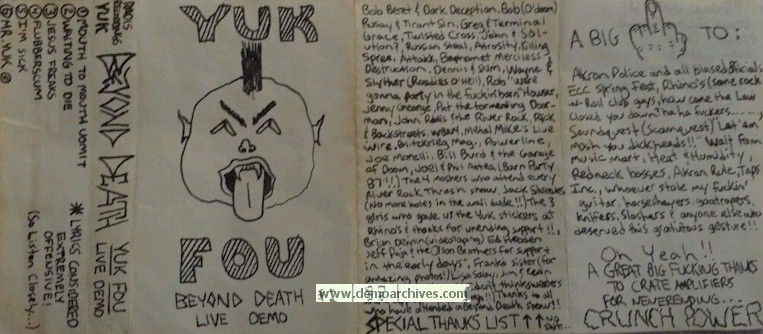 RADIS RECORDINGS
BEYOND DEATH
YUK FOU
LIVE DEMO
① MOUTH TO MOUTH VOMIT
② WAITING TO DIE
③ JESUS FREAKS
④ FLUBBERSCUM
⑤ I'M SICK
⑥ MR YUK
* LYRICS CONSIDERED
EXTREMELY
OFFENSIVE!
(So Listen Closely...)
YUK
FOU
BEYOND DEATH
LIVE DEMO
Bob Beret & Dark Deception, Bob (O'doom)
Pusay & Tirant Sin, Greg & Terminal
Grace, Twisted Cross, John & Sol-
ution?, Russian Steal, Atrosity, Killing
Spree, Attakk, Baphomet Merciless
Destruction, Dennis & Snim, Wayne &
Slyther (Roadies O'Hell), Rob "we're
gonna party in the fuckin' barn" Houser,
Jenny, George, Pat the tormenting Door-
man, John Radis & the River Rock, Rick
& Backstreets, WBAH, Metal Mike's Live
Wire, Blitzkrieg Mag, Powerline,
Joe Monelli, Bill Burd & the Garage
of Doom, Joel & Phil Attea, (Barn Party
87!!!) The 4 moshers who attend every
River Rock Thrash show, Jack
(No more holes in the wall dude!!) The 3
girls who gave us the Yuk stickers at
Rhino's & thanks for unending support!!,
Brian (videotaping) Ed
Jeff & the Olson Brothers for support
in the early days", Franks Sister (for
amazing photos!) Lisa
Thanks to all
who have attended a Beyond Death show!!
SPECIAL THANKS LIST ↑↑
www.demoarchives.com
A BIG TO:
Akron Police and all biased officials,
ECC Spring Fest, Rhino's (same rock
-n-Roll club guys, how come the Law
closed you down? ha ha fuckers......,
Soundquest (Scamquest) "Let 'em
mosh you dickheads!!" Walt from
music mart, Heat & Humidity,
Redneck bosses, Akron Rate, Tops
Inc., whoever stole my fuckin'
guitar, horselayers, goatropers,
knifers, Slashers & anyone else who
deserved this gratuitous gesture!!
Oh Yeah!!
A GREAT BIG FUCKING THANKS
TO CRATE AMPLIFIERS
FOR NEVERENDING...
CRUNCH POWER